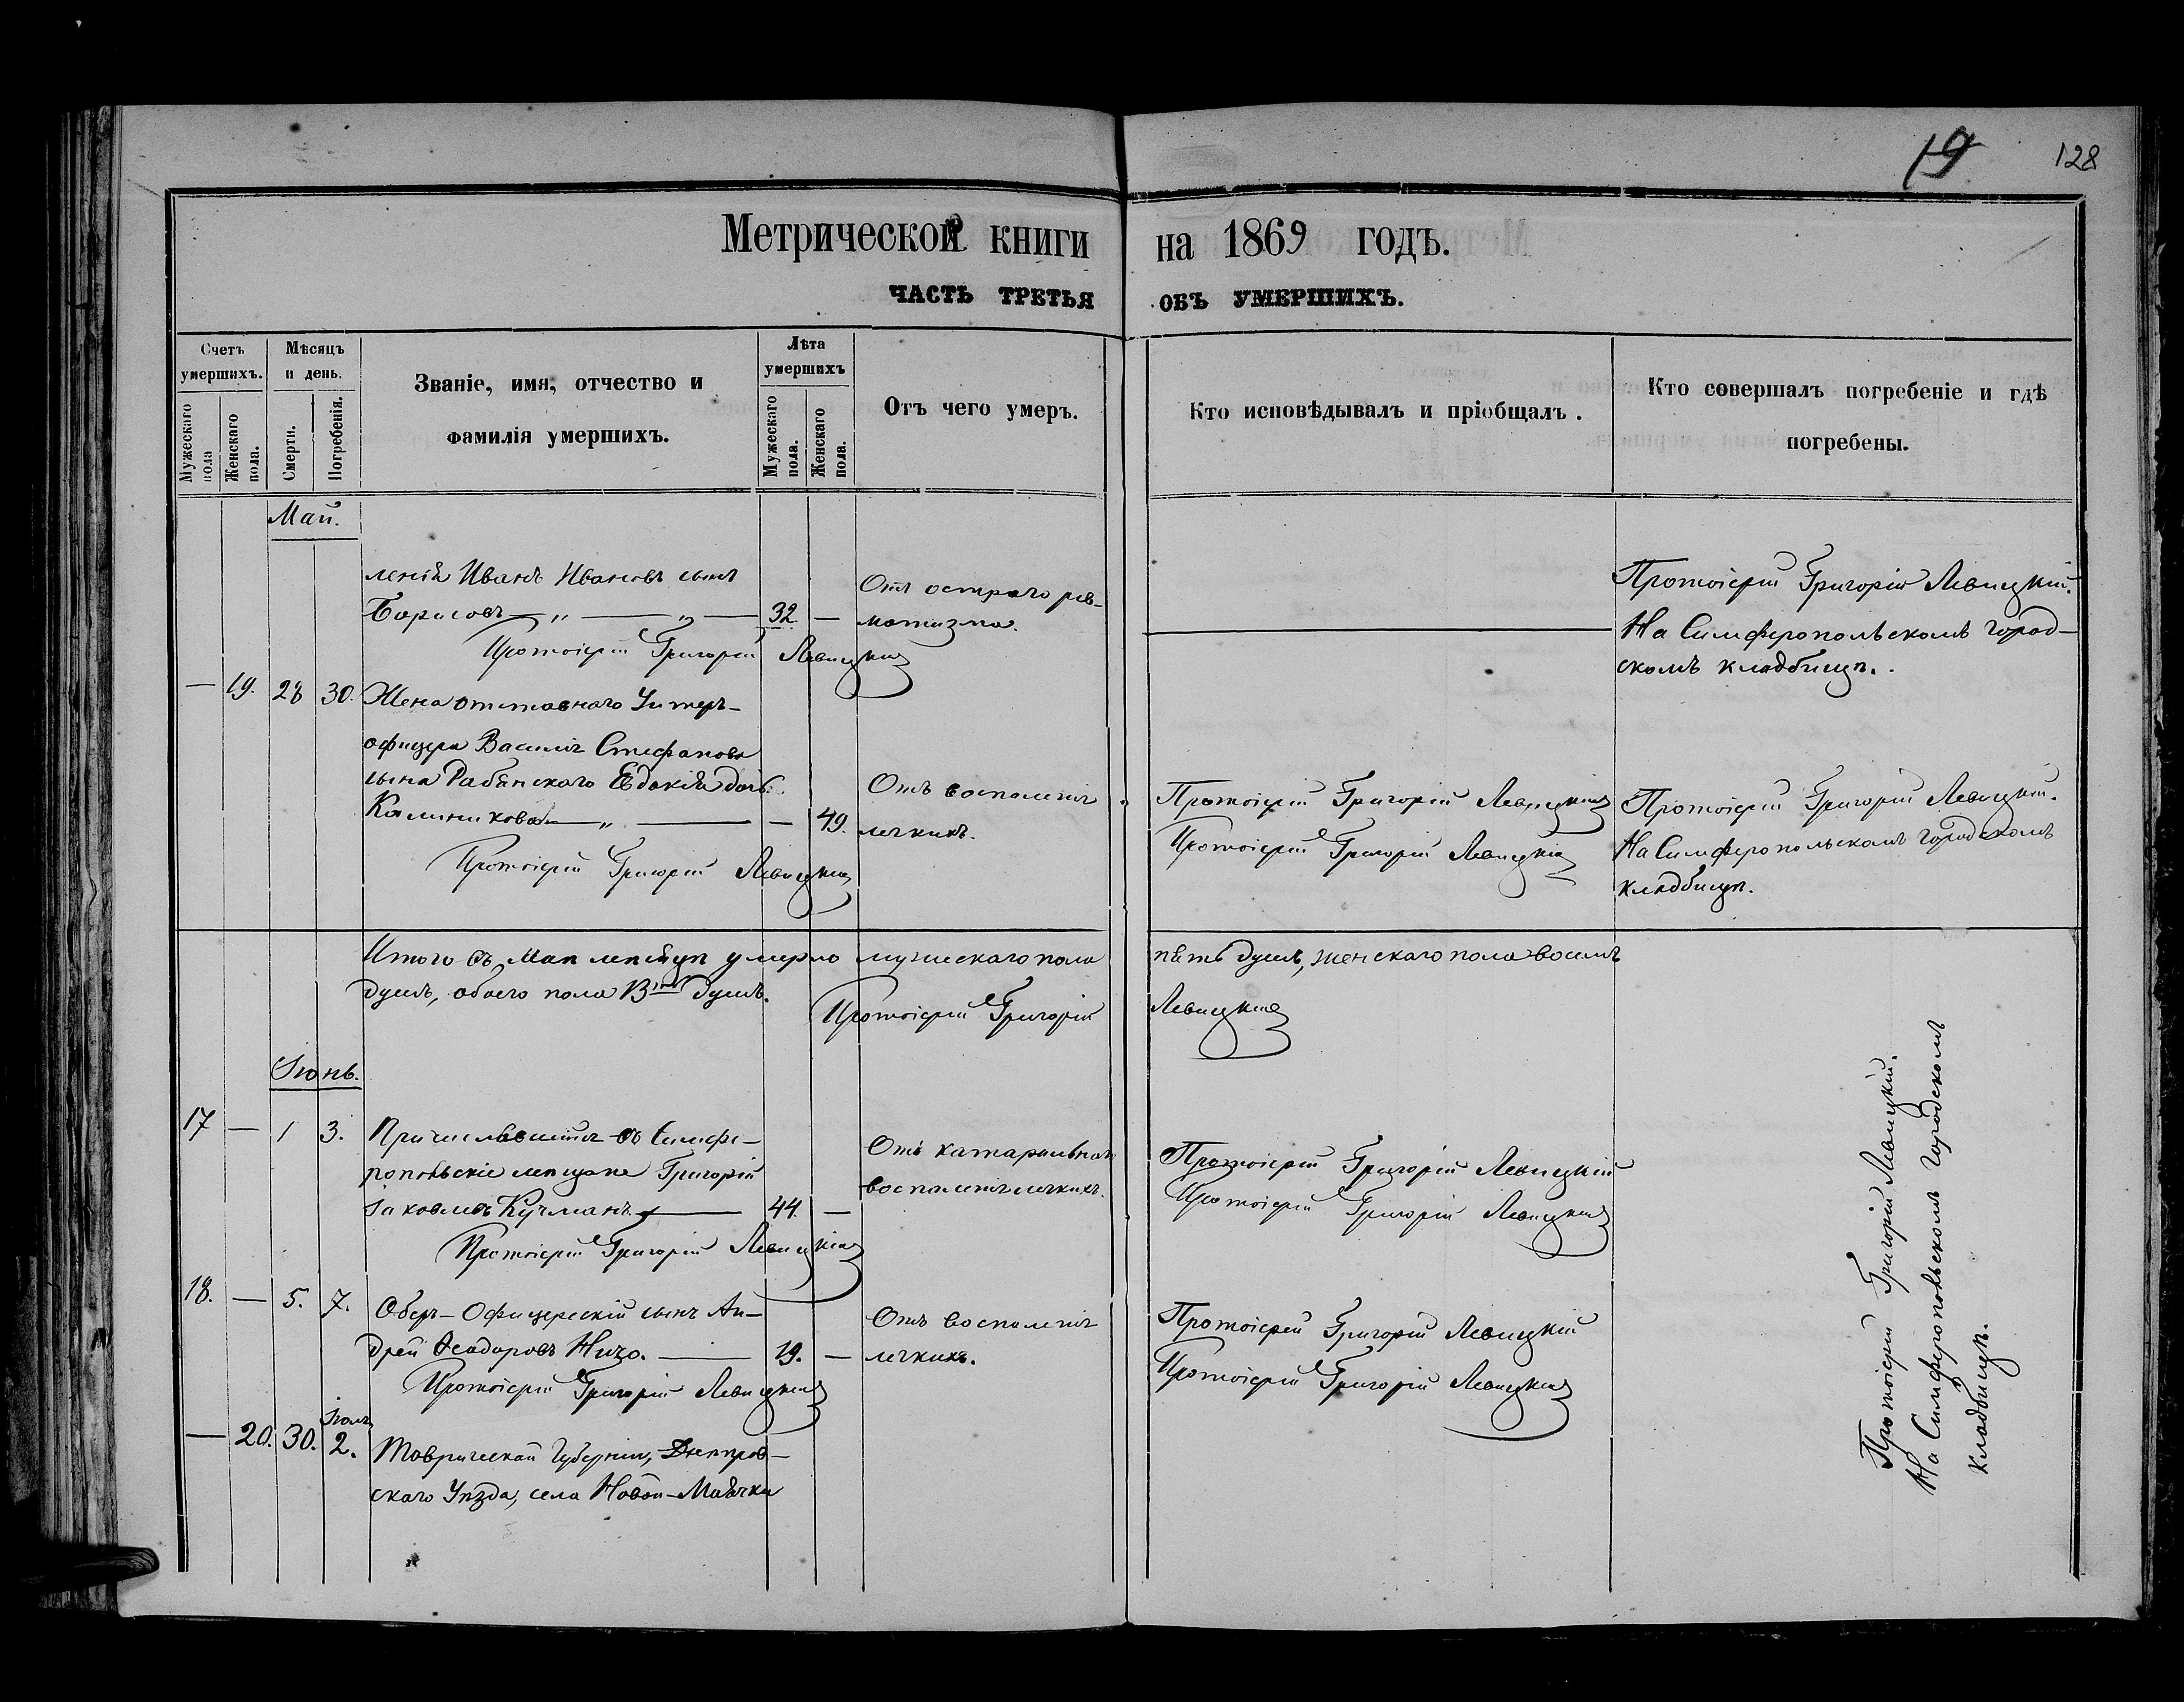 19 128
Метрической книги на 1869 годъ.
ЧАСТЬ ТРЕТЬЯ ОБЪ УМЕРШИХЪ.
Счетъ умершихъ.
Мужескаго пола
Женскаго пола.
Мѣсяцъ и день.
Смерти.
Погребенія.
Званіе, имя, отчество и
фамилія умершихъ.
Лѣта умершихъ
Мужескаго пола.
Женскаго пола.
Отъ чего умеръ.
Кто исповѣдывалъ и пріобщалъ.
Кто совершалъ погребеніе и гдѣ
погребены.
Май.
Иванъ Ивановъ сынъ
Борисовъ — „ — „ — 32. —
Протоіерей Григорій Левицкій
Отъ остраго рев-
матизма.
Протоіерей Григорій Левицкій.
На Симферопольскомъ город-
скомъ кладбищѣ.
— 19. 28 30. Жена отставнаго Унтеръ-
офицера Василія Стефанова
сына Рабянскаго Евдокія дочь
Калиникова — „ — — 49.
Протоіерей Григорій Левицкій
Отъ воспаленія
легкихъ.
Протоіерей Григорій Левицкій
Протоіерей Григорій Левицкій
Протоіерей Григорій Левицкій.
На Симферопольскомъ городскомъ
кладбищѣ.
Итого въ Маѣ мѣсяцѣ умерло мужескаго пола пять душъ, женскаго пола восемь
душъ, обоего пола 13ть душъ.
Протоіерей Григорій Левицкій
Іюнь.
17 — 1 3. Причислявшійся въ Симфе-
ропольскіе мещане Григорій
Іаковлевъ Кучманъ — 44. —
Протоіерей Григорій Левицкій
Отъ катаральнаго
воспаленія легкихъ.
Протоіерей Григорій Левицкій
Протоіерей Григорій Левицкій
18. — 5. 7. Оберъ-Офицерскій сынъ Ан-
дрей Ѳеодоровъ Низо. — 19. —
Протоіерей Григорій Левицкій
Отъ воспаленія
легкихъ.
Протоіерей Григорій Левицкій
Протоіерей Григорій Левицкій
Протоіерей Григорій Левицкій.
На Симферопольскомъ городскомъ
кладбищѣ.
— 20. 30. Іюля 2. Таврической Губерніи, Днепров-
скаго Уѣзда, села Новой-Маячки